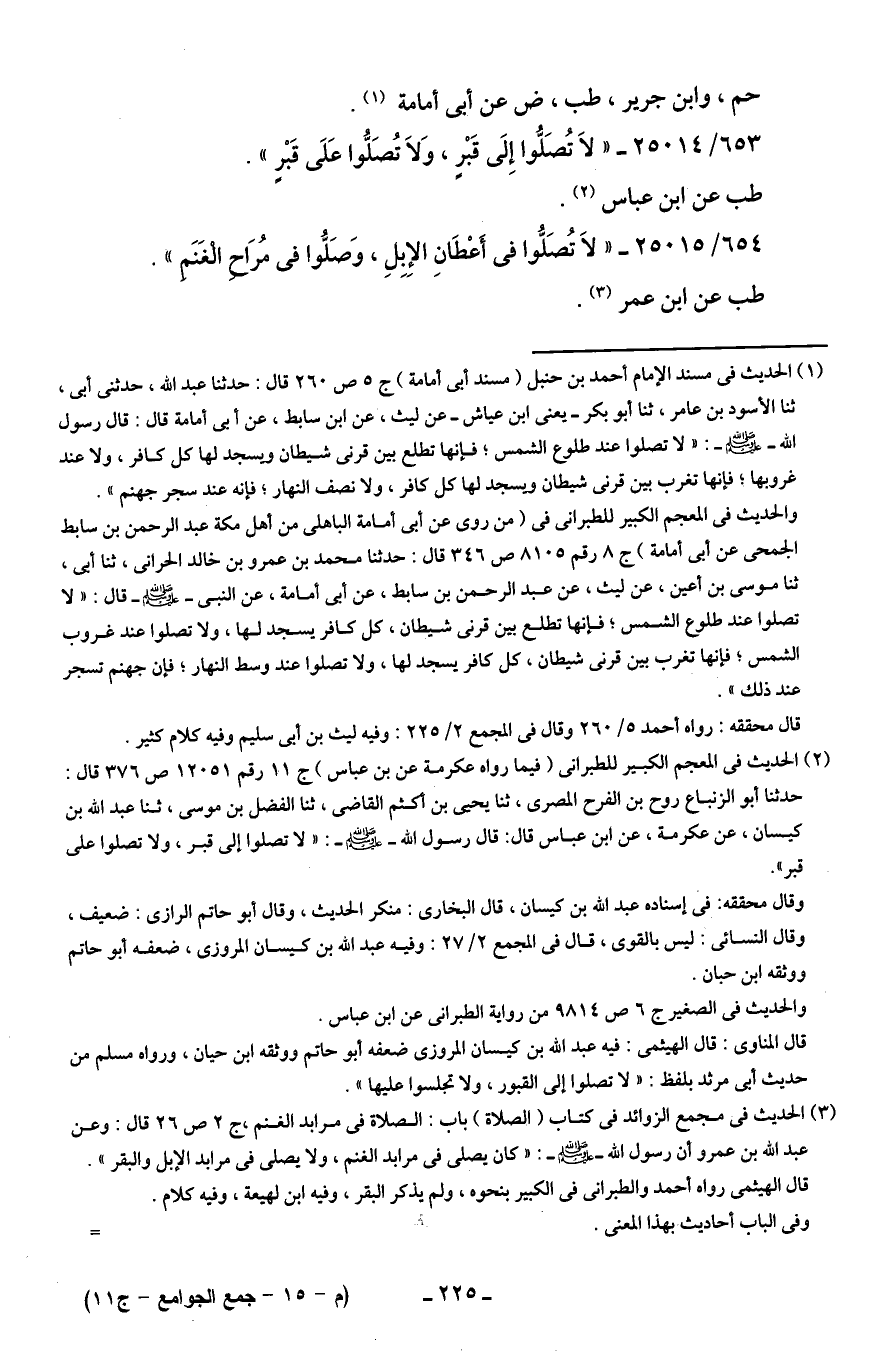 حم ، وابن جرير ، طب ، ض عن أبى أمامة (١) .
٦٥٣/ ٢٥٠١٤ ـ « لاَ تُصَلُّوا إِلَى قَبْرٍ ، وَلاَ تُصَلُّوا عَلَى قَبْرٍ » .
طب عن ابن عباس (٢) .
٦٥٤/ ٢٥٠١٥ ـ « لاَ تُصَلُّوا فى أَعْطَانِ الإِبِلِ ، وَصَلُّوا فى مُرَاحِ الْغَنَمِ » .
طب عن ابن عمر (٣) .
(١) الحديث فى مسند الإمام أحمد بن حنبل ( مسند أبى أمامة ) ج ٥ ص ٢٦٠ قال : حدثنا عبد الله ، حدثنى أبى ،
ثنا الأسود بن عامر ، ثنا أبو بكر ـ يعنى ابن عياش ـ عن ليث ، عن ابن سابط ، عن أبى أمامة قال : قال رسول
الله ـ ﷺ ـ : « لا تصلوا عند طلوع الشمس ؛ فإنها تطلع بين قرنى شيطان ويسجد لها كل كافر ، ولا عند
غروبها ؛ فإنها تغرب بين قرنى شيطان ويسجد لها كل كافر ، ولا نصف النهار ؛ فإنه عند سجر جهنم » .
والحديث فى المعجم الكبير للطبرانى فى ( من روى عن أبى أمامة الباهلى من أهل مكة عبد الرحمن بن سابط
الجمحى عن أبى أمامة ) ج ٨ رقم ٨١٠٥ ص ٣٤٦ قال : حدثنا محمد بن عمرو بن خالد الحرانى ، ثنا أبى ،
ثنا موسى بن أعين ، عن ليث ، عن عبد الرحمن بن سابط ، عن أبى أمامة ، عن النبى ـ ﷺ ـ قال : « لا
تصلوا عند طلوع الشمس ؛ فإنها تطلع بين قرنى شيطان ، كل كافر يسجد لها ، ولا تصلوا عند غروب
الشمس ؛ فإنها تغرب بين قرنى شيطان ، كل كافر يسجد لها ، ولا تصلوا عند وسط النهار ؛ فإن جهنم تسجر
عند ذلك » .
قال محققه : رواه أحمد ٥/ ٢٦٠ وقال فى المجمع ٢/ ٢٢٥ : وفيه ليث بن أبى سليم وفيه كلام كثير .
(٢) الحديث فى المعجم الكبير للطبرانى ( فيما رواه عكرمة عن بن عباس ) ج ١١ رقم ١٢٠٥١ ص ٣٧٦ قال :
حدثنا أبو الزنباع روح بن الفرح المصرى ، ثنا يحيى بن أكثم القاضى ، ثنا الفضل بن موسى ، ثنا عبد الله بن
كيسان ، عن عكرمة ، عن ابن عباس قال: قال رسول الله ـ ﷺ ـ : « لا تصلوا إلى قبر ، ولا تصلوا على
قبر».
وقال محققه: فى إسناده عبد الله بن كيسان ، قال البخارى : منكر الحديث ، وقال أبو حاتم الرازى : ضعيف ،
وقال النسائى : ليس بالقوى ، قال فى المجمع ٢/ ٢٧ : وفيه عبد الله بن كيسان المروزى ، ضعفه أبو حاتم
ووثقه ابن حبان .
والحديث فى الصغير ج ٦ ص ٩٨١٤ من رواية الطبرانى عن ابن عباس .
قال المناوى : قال الهيثمى : فيه عبد الله بن كيسان المروزى ضعفه أبو حاتم ووثقه ابن حيان ، ورواه مسلم من
حديث أبى مرثد بلفظ : « لا تصلوا إلى القبور ، ولا تجلسوا عليها » .
(٣) الحديث فى مجمع الزوائد فى كتاب ( الصلاة ) باب : الصلاة فى مرابد الغنم ،ج ٢ ص ٢٦ قال : وعن
عبد الله بن عمرو أن رسول الله ـ ﷺ ـ : « كان يصلى فى مرابد الغنم ، ولا يصلى فى مرابد الإبل والبقر » .
قال الهيثمى رواه أحمد والطبرانى فى الكبير بنحوه ، ولم يذكر البقر ، وفيه ابن لهيعة ، وفيه كلام .
وفى الباب أحاديث بهذا المعنى . =
ـ ٢٢٥ ـ (م - ١٥ - جمع الجوامع - ج١١)